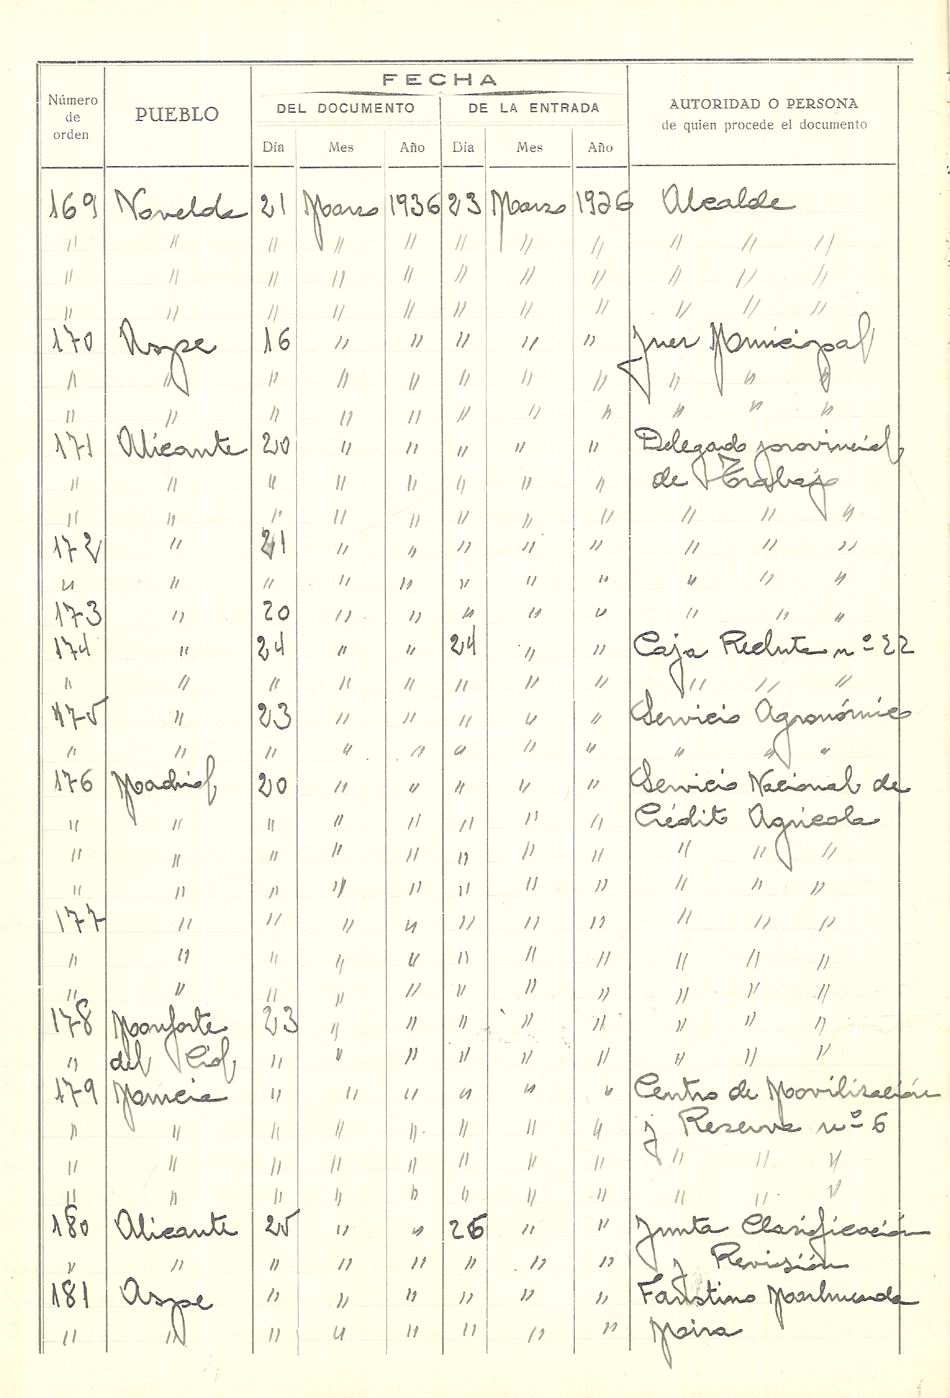 FECHA
Número de orden PUEBLO DEL DOCUMENTO DE LA ENTRADA AUTORIDAD O PERSONA de quien procede el documento
Día Mes Año Día Mes Año
169 Novelda 21 Marzo 1936 23 Marzo 1936 Alcalde
" " " " " " " " " " "
" " " " " " " " " " "
" " " " " " " " " " "
170 Aspe 16 " " " " " Juez Municipal
" " " " " " " " " " "
" " " " " " " " " " "
171 Alicante 20 " " " " " Delegado provincial
" " " " " " " " de Trabajo
" " " " " " " " " " "
172 " 21 " " " " " " " "
" " " " " " " " " " "
173 " 20 " " " " " " " "
174 " 24 " " 24 " " Caja Recluta nº 22
" " " " " " " " " " "
175 " 23 " " " " " Servicio Agronómico
" " " " " " " " " " "
176 Madrid 20 " " " " " Servicio Nacional de
" " " " " " " " Crédito Agrícola
" " " " " " " " " " "
" " " " " " " " " " "
177 " " " " " " " " " "
" " " " " " " " " " "
" " " " " " " " " " "
178 Monforte 23 " " " " " " " "
" del Cid " " " " " " " " "
179 Murcia " " " " " " Centro de Movilización
" " " " " " " " y Reserva nº 6
" " " " " " " " " " "
" " " " " " " " " " "
180 Alicante 25 " " 26 " " Junta Clasificación
" " " " " " " " y Revisión
181 Aspe " " " " " " Faustino
" " " " " " " "